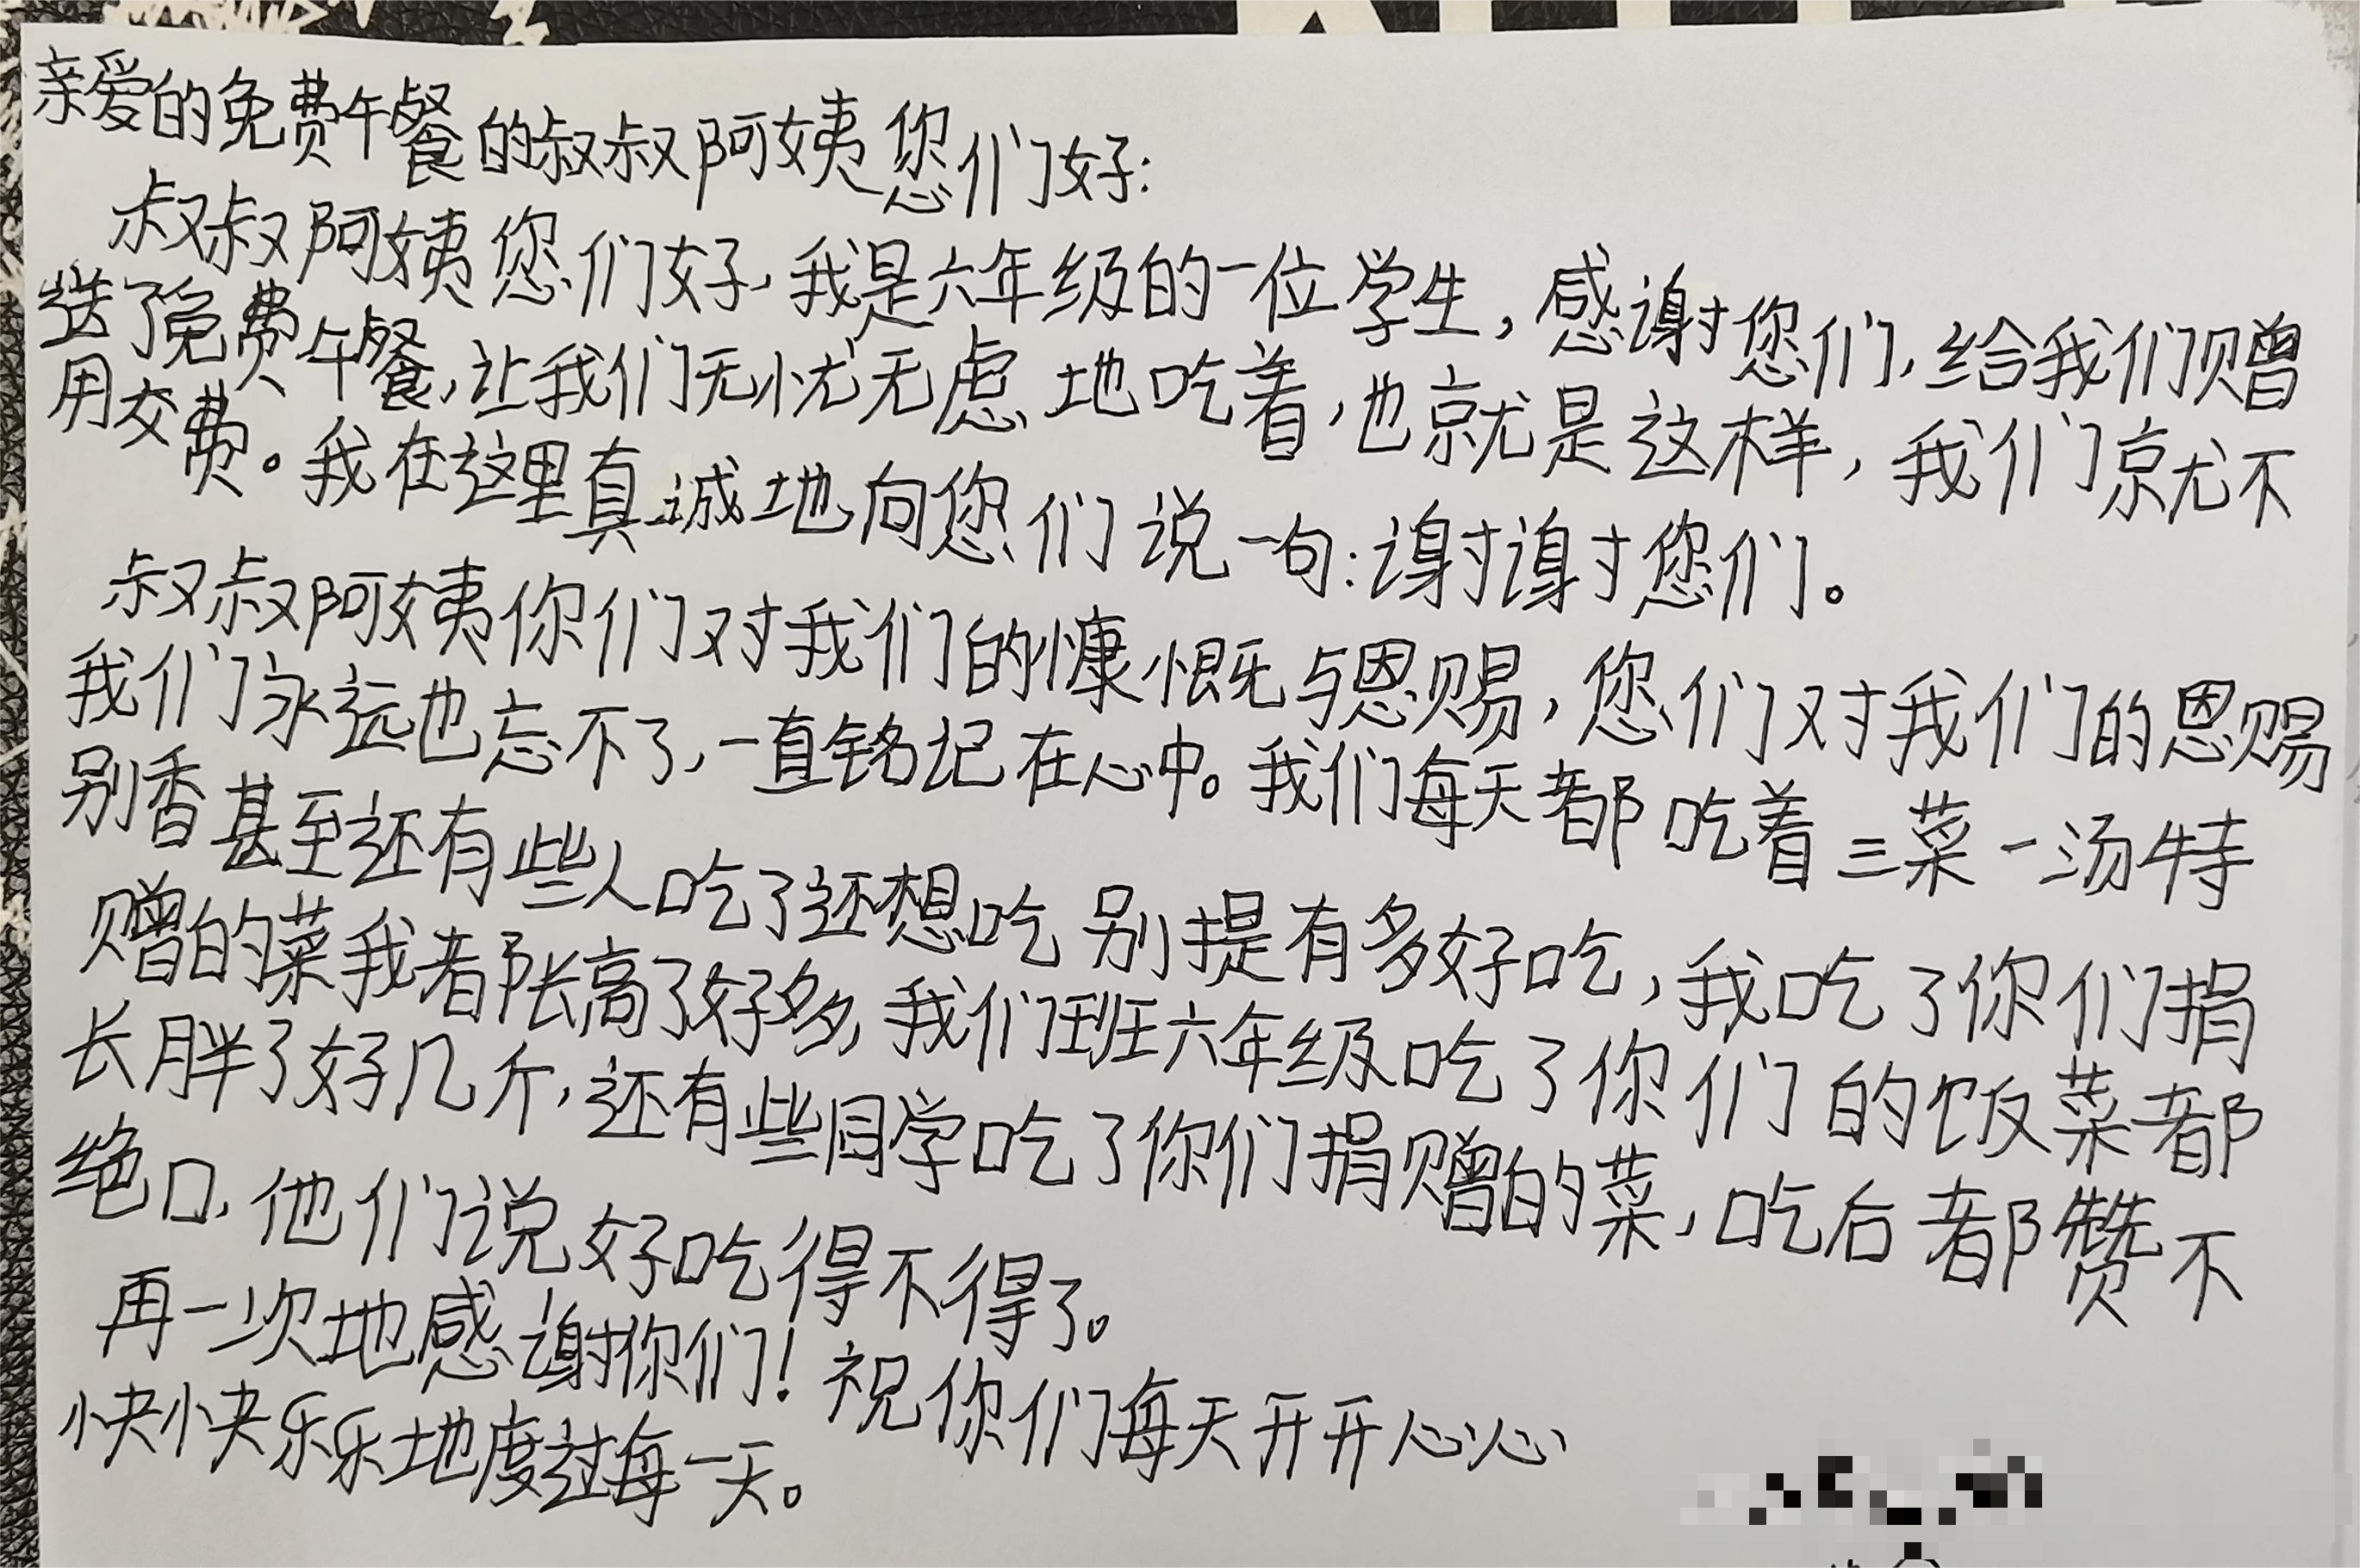 亲爱的免费午餐的叔叔阿姨您们好:
叔叔阿姨您们好,我是六年级的一位学生,感谢您们,给我们赠
送了免费午餐,让我们无忧无虑地吃着,也就是这样,我们就不
用交费。我在这里真诚地向您们说一句:谢谢您们。
叔叔阿姨你们对我们的慷慨与恩赐,您们对我们的恩赐
我们永远也忘不了,一直铭记在心中。我们每天都吃着三菜一汤特
别香甚至还有些人吃了还想吃别提有多好吃,我吃了你们捐
赠的菜我都长高了好多,我们班六年级吃了你们的饭菜都
长胖了好几斤,还有些同学吃了你们捐赠的菜,吃后都赞不
绝口,他们说好吃得不得了。
再一次地感谢你们!祝你们每天开开心心
快快乐乐地度过每一天。